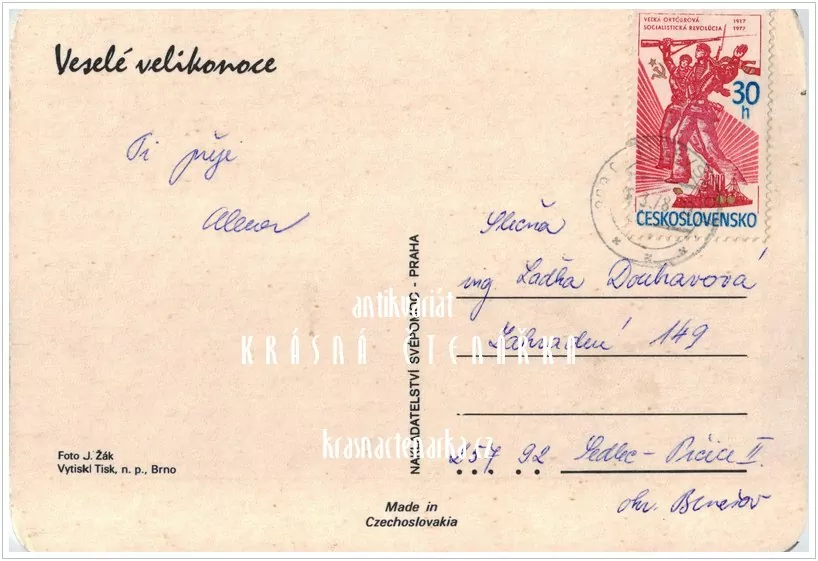 Veselé velikonoce
VEĽKÁ OKTÓBROVÁ
SOCIALISTICKÁ REVOLÚCIA
1917
1977
30
h
ČESKOSLOVENSKO
Ti přeje
Alena
Slečna
ing. Ladka Douhavová
Zahradní 149
257 92 Sedlec - Prčice II.
okr. Benešov
NAKLADATELSTVÍ SVÉPOMOC - PRAHA
antikvariát
KRÁSNÁ ČTENÁŘKA
krasnactenarka.cz
Foto J. Žák
Vytiskl Tisk, n. p., Brno
Made in
Czechoslovakia